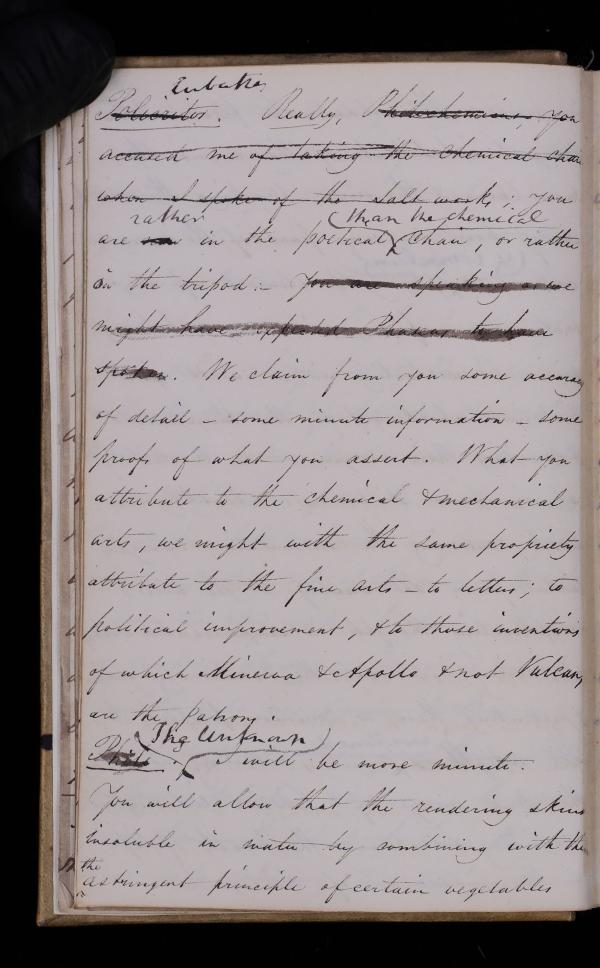 Eubathes
Policritos. Really, Philochemicus, you
accused me of taking the chemical chair
when I spoke of the Salt works; you
rather (than the chemical
are now in the poetical) Chair, or rather
in the tripod:- You are speaking as we
might have expected Phaseus to have
spoken. We claim from you some accuracy
of detail – some minute information – some
proofs of what you assert. What you
attribute to the chemical & mechanical
arts, we might with the same propriety
attribute to the fine arts – to letters; to
political improvement, & to those inventions
of which Minerva & Apollo & not Vulcan,
are the patrons.
(The Unknown)
Phil. I will be more minute.
You will allow that the rendering skins
insoluble in water by combining with the
the
astringent principle of certain vegetables